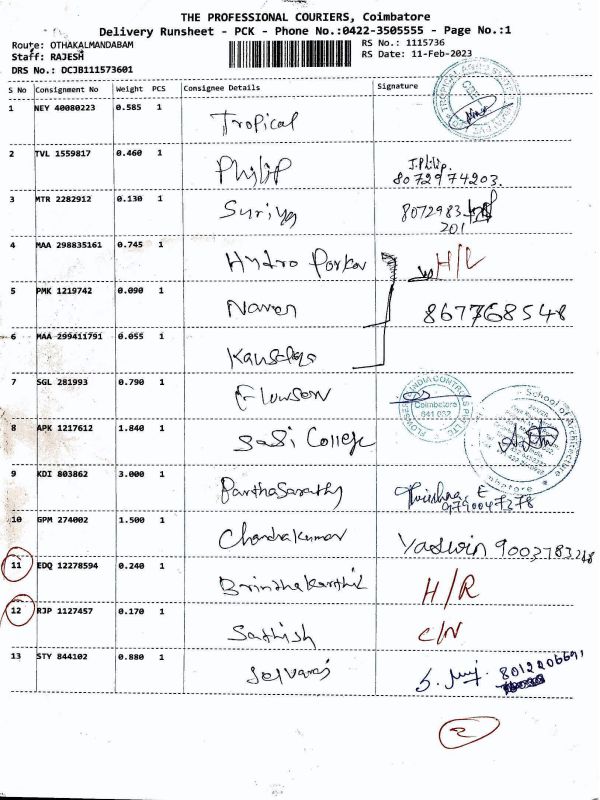 THE PROFESSIONAL COURIERS, Coimbatore
Delivery Runsheet - PCK - Phone No.:0422-3505555 - Page No.:1
Route: OTHAKALMANDABAM RS No.: 1115736
Staff: RAJESH RS Date: 11-Feb-2023
DRS No.: DCJB111573601
S No Consignment No Weight PCS Consignee Details Signature
1 NEY 40080223 0.585 1 Tropical
2 TVL 1559817 0.460 1 Philip J.Philip. 8072974203.
3 MTR 2282912 0.130 1 Suriya 8072983
201
4 MAA 298835161 0.745 1 Hydro H/L
5 PMK 1219742 0.090 1 Naren 867768548
6 MAA 299411791 0.055 1
7 SGL 281993 0.790 1 Flowser
Coimbatore
641 032
8 APK 1217612 1.840 1 Sasi College
School of Architecture
9 KDI 803862 3.000 1 Parthasarathy E
9790047278
10 GPM 274002 1.500 1 Chandrakumar Yaswin 9003783248
11 EDQ 12278594 0.240 1 Brindhakarthik H/R
12 RJP 1127457 0.170 1 Sathish C/N
13 STY 844102 0.880 1 Selvaraj 8012206691
2